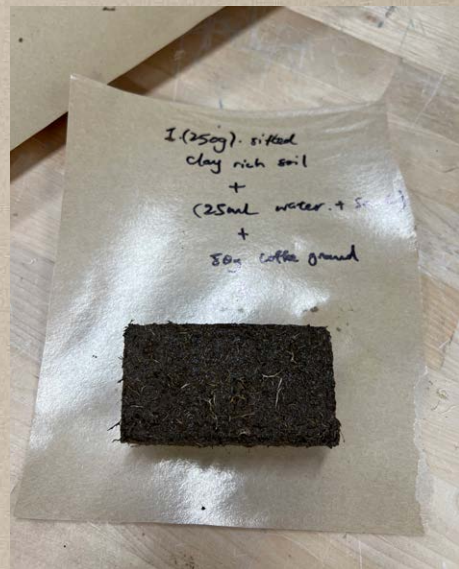 I. (250g). sifted
clay rich soil
+
(25mL water. +
+
80g coffe ground